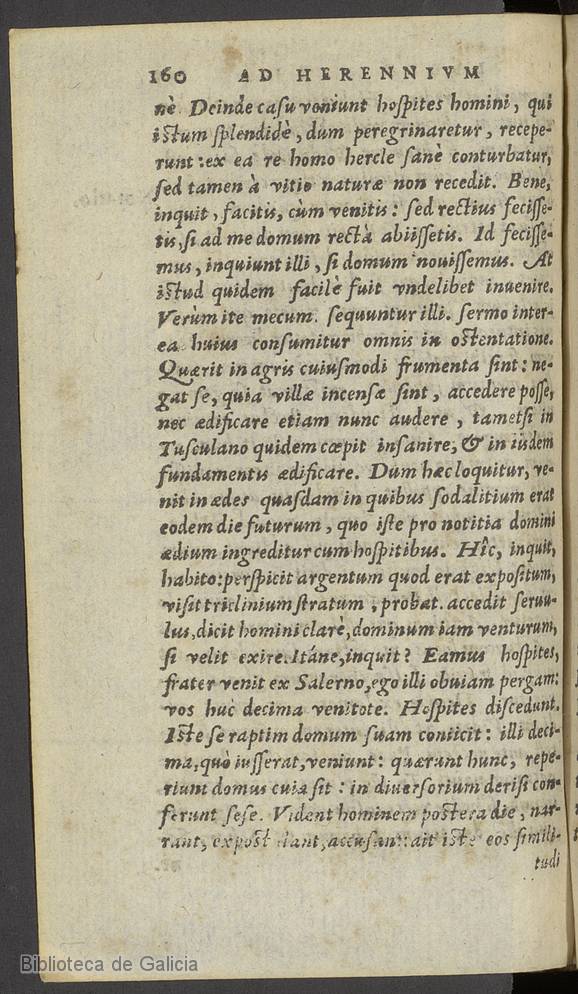 160 AD HERENNIVM
nè. Deinde casu veniunt hospites homini, qui
istum splendidè, dum peregrinaretur, recepe-
runt: ex ea re homo hercle sanè conturbatur,
sed tamen à vitio naturæ non recedit. Bene,
inquit, facitis, cùm venitis: sed rectius fecisse-
tis, si ad me domum rectà abiissetis. Id fecisse-
mus, inquiunt illi, si domum nouissemus. At
istud quidem facilè fuit vndelibet inuenire.
Verùm ite mecum. sequuntur illi. sermo inter-
ea huius consumitur omnis in ostentatione.
Quærit in agris cuiusmodi frumenta sint: ne-
gat se, quia villæ incensæ sint, accedere posse,
nec ædificare etiam nunc audere, tametsi in
Tusculano quidem cœpit insanire, & in iisdem
fundamentis ædificare. Dum hæc loquitur, ve-
nit in ædes quasdam in quibus sodalitium erat
eodem die futurum, quo iste pro notitia domini
ædium ingreditur cum hospitibus. Hîc, inquit,
habito: perspicit argentum quod erat expositum,
visit triclinium stratum, probat. accedit seruu-
lus, dicit homini clarè, dominum iam venturum,
si velit exire. Itáne, inquit? Eamus hospites,
frater venit ex Salerno, ego illi obuiam pergam:
vos huc decima venitote. Hospites discedunt.
Iste se raptim domum suam coniicit: illi deci-
ma, quò iusserat, veniunt: quærunt hunc, repe-
riunt domus cuia sit: in diuersorium derisi con-
ferunt sese. Vident hominem postera die, nar-
rant, expostulant, accusant: ait iste eos simili-
tudi
Biblioteca de Galicia